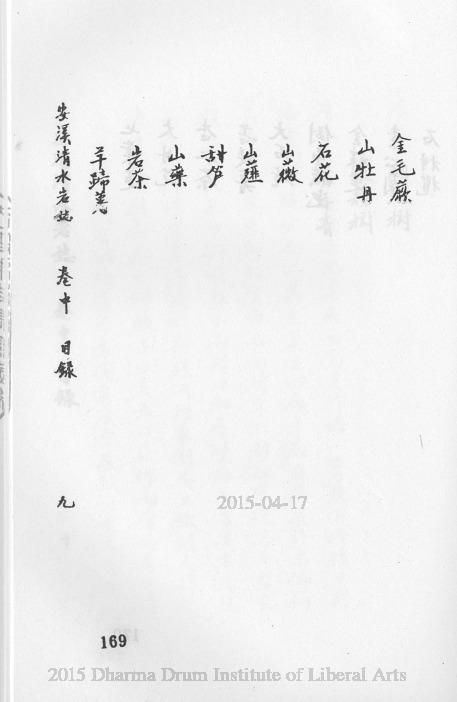 金毛蕨
山牡丹
石花
山薇
山薤
甜笋
山藥
岩茶
羊蹄
安溪清水岩誌 卷中 目錄 九
2015-04-17
169
2015 Dharma Drum Institute of Liberal Arts